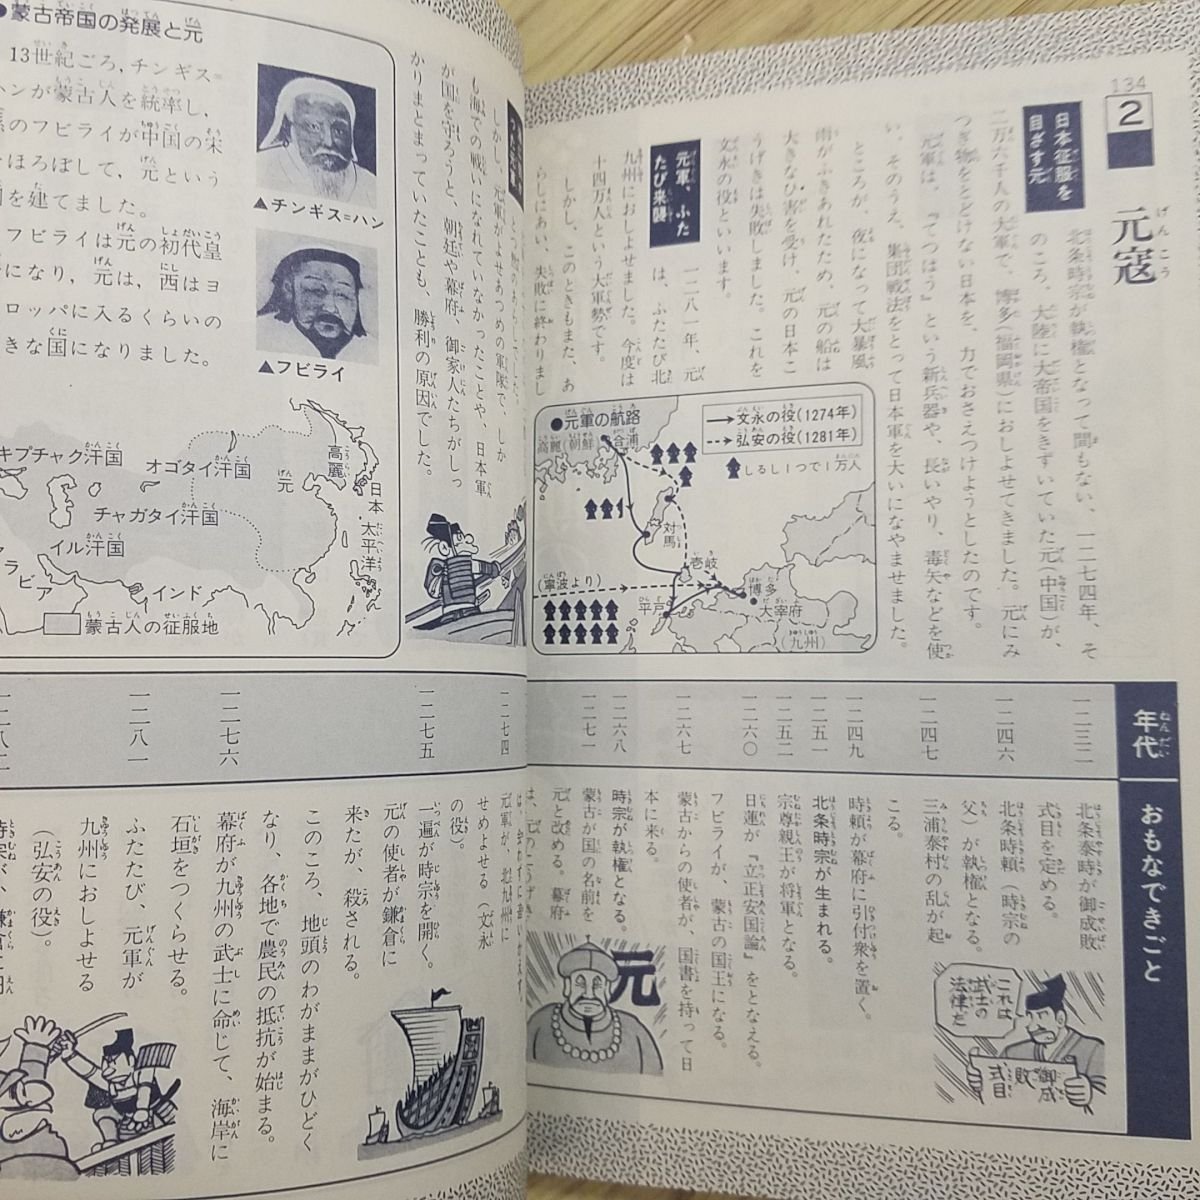 134
2
元寇
げんこう
日本征服を
目ざす元
北条時宗が執権となって間もない、一二七四年、そ
のころ、大陸に大帝国をきずいていた元(中国)が、
二万六千人の大軍で、博多(福岡県)におしよせてきました。元にみ
つぎ物をとどけない日本を、力でおさえつけようとしたのです。
元軍は、『てつはう』という新兵器や、長いやり、毒矢などを使
い、そのうえ、集団戦法をとって日本軍を大いになやませました。
ところが、夜になって大暴風
雨がふきあれたため、元の船は
大きなひ害を受け、元の日本こ
うげきは失敗しました。これを
文永の役といいます。
元軍、ふた
たび来襲
一二八一年、元
は、ふたたび北
九州におしよせました。今度は
十四万人という大軍勢です。
しかし、このときもまた、あ
らしにあい、失敗に終わりまし
しかし、元軍がよせあつめの軍隊で、しか
も海での戦いになれていなかったことや、日本軍
が国を守ろうと、朝廷や幕府、御家人たちがしっ
かりまとまっていたことも、勝利の原因でした。
●元軍の航路
文永の役(1274年)
弘安の役(1281年)
しるし1つで1万人
高麗(朝鮮)
合浦
対馬
壱岐
(寧波より)
博多
平戸
大宰府
(九州)
●蒙古帝国の発展と元
13世紀ごろ、チンギス=
ハンが蒙古人を統率し、
のフビライが中国の宋
ほろぼして、元という
を建てました。
フビライは元の初代皇
になり、元は、西はヨ
ロッパに入るくらいの
きな国になりました。
▲チンギス=ハン
▲フビライ
キプチャク汗国
オゴタイ汗国
チャガタイ汗国
イル汗国
元
高麗
日本
太平洋
ラビア
インド
蒙古人の征服地
年代
おもなできごと
一二三二
北条泰時が御成敗
式目を定める。
一二四六
北条時頼(時宗の
父)が執権となる。
一二四七
三浦泰村の乱が起
こる。
一二四九
時頼が幕府に引付衆を置く。
一二五一
北条時宗が生まれる。
一二五二
宗尊親王が将軍となる。
一二六〇
日蓮が『立正安国論』をとなえる。
フビライが、蒙古の国王になる。
一二六七
蒙古からの使者が、国書を持って日
本に来る。
一二六八
時宗が執権となる。
一二七一
蒙古が国の名前を
元と改める。幕府
一二七四
元軍が、北九州に
せめよせる(文永
の役)。
一二七五
一遍が時宗を開く。
元の使者が鎌倉に
来たが、殺される。
このころ、地頭のわがままがひどく
なり、各地で農民の抵抗が始まる。
一二七六
幕府が九州の武士に命じて、海岸に
石垣をつくらせる。
一二八一
ふたたび、元軍が
九州におしよせる
(弘安の役)。
一二八二
これは
武士の
法律だ
御成
敗
式目
元